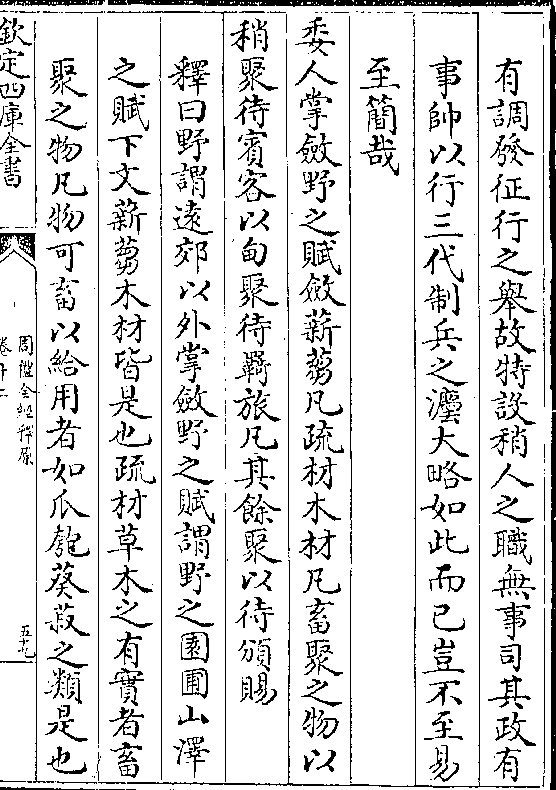 有調發征行之舉故特設稍人之職無事司其政有
事帥以行三代制兵之灋大略如此而已豈不至易
至簡哉
委人掌斂野之賦斂薪芻凡疏材木材凡畜聚之物以
稍聚待賓客以甸聚待羇旅凡其餘聚以待頒賜
釋曰野謂遠郊以外掌斂野之賦謂野之園圃山澤
之賦下文薪芻木材皆是也疏材草木之有實者畜
聚之物凡物可畜以給用者如瓜匏葵菽之類是也
欽定四庫全書
周禮全經釋原
卷十二
五十九